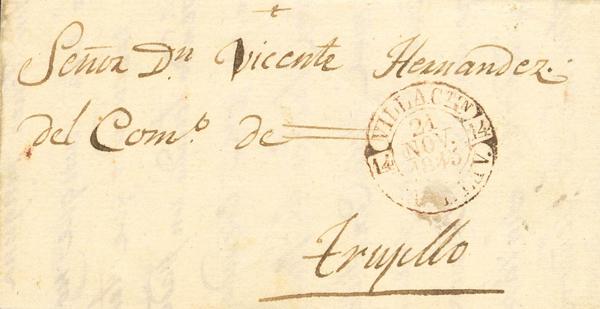 Señor Dn Vicente Hernandez.
del Com.o de
VILLACTIN
14
21
NOV.
1845
14
Trujillo